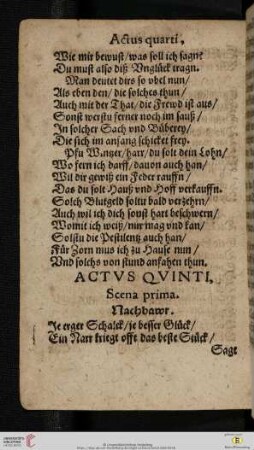 Actus quarti.
Wie mir bewust / was soll ich sagn?
Du must also diß Vnglück tragn.
Man deutet dirs so vbel nun /
Als eben den / die solches thun /
Auch mit der That / die Frewd ist aus /
Sonst werstu ferner noch im sauß /
In solcher Sach vnd Büberey /
Die sich im anfang schicket frey.
Pfu Wanger / harr / du solt dein Lohn /
Wo fern ich darff / dauon auch han /
Wil dir gewiß ein Feder rauffn /
Das du solt Hauß vnd Hoff verkauffn.
Solch Blutgeld soltu bald verzehrn /
Auch wil ich dich sonst hart beschwern /
Womit ich weiß / nur mag vnd kan /
Solstu die Pestilentz auch han /
Für Zorn mus ich zu Hause nun /
Vnd solchs von stund anfahen thun.
ACTVS QVINTI,
Scena prima.
Nachbawr.
Je erger Schalck / je besser Glück /
Ein Narr kriegt offt das beste Stück /
Sagt